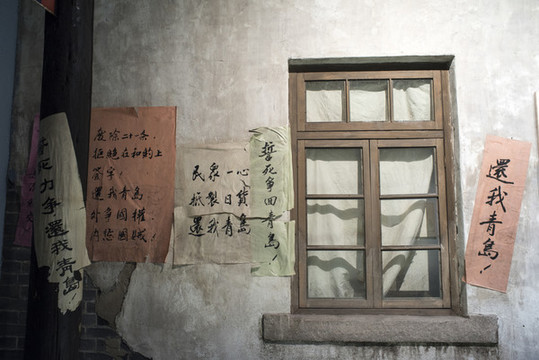 死力争還我青島!
廢除二十一条,
拒絕在和約上
簽字!
還我青島
外争國權
内懲國賊!
民眾一心
抵製日貨
還我青島
誓死争回青島!
還我青島!